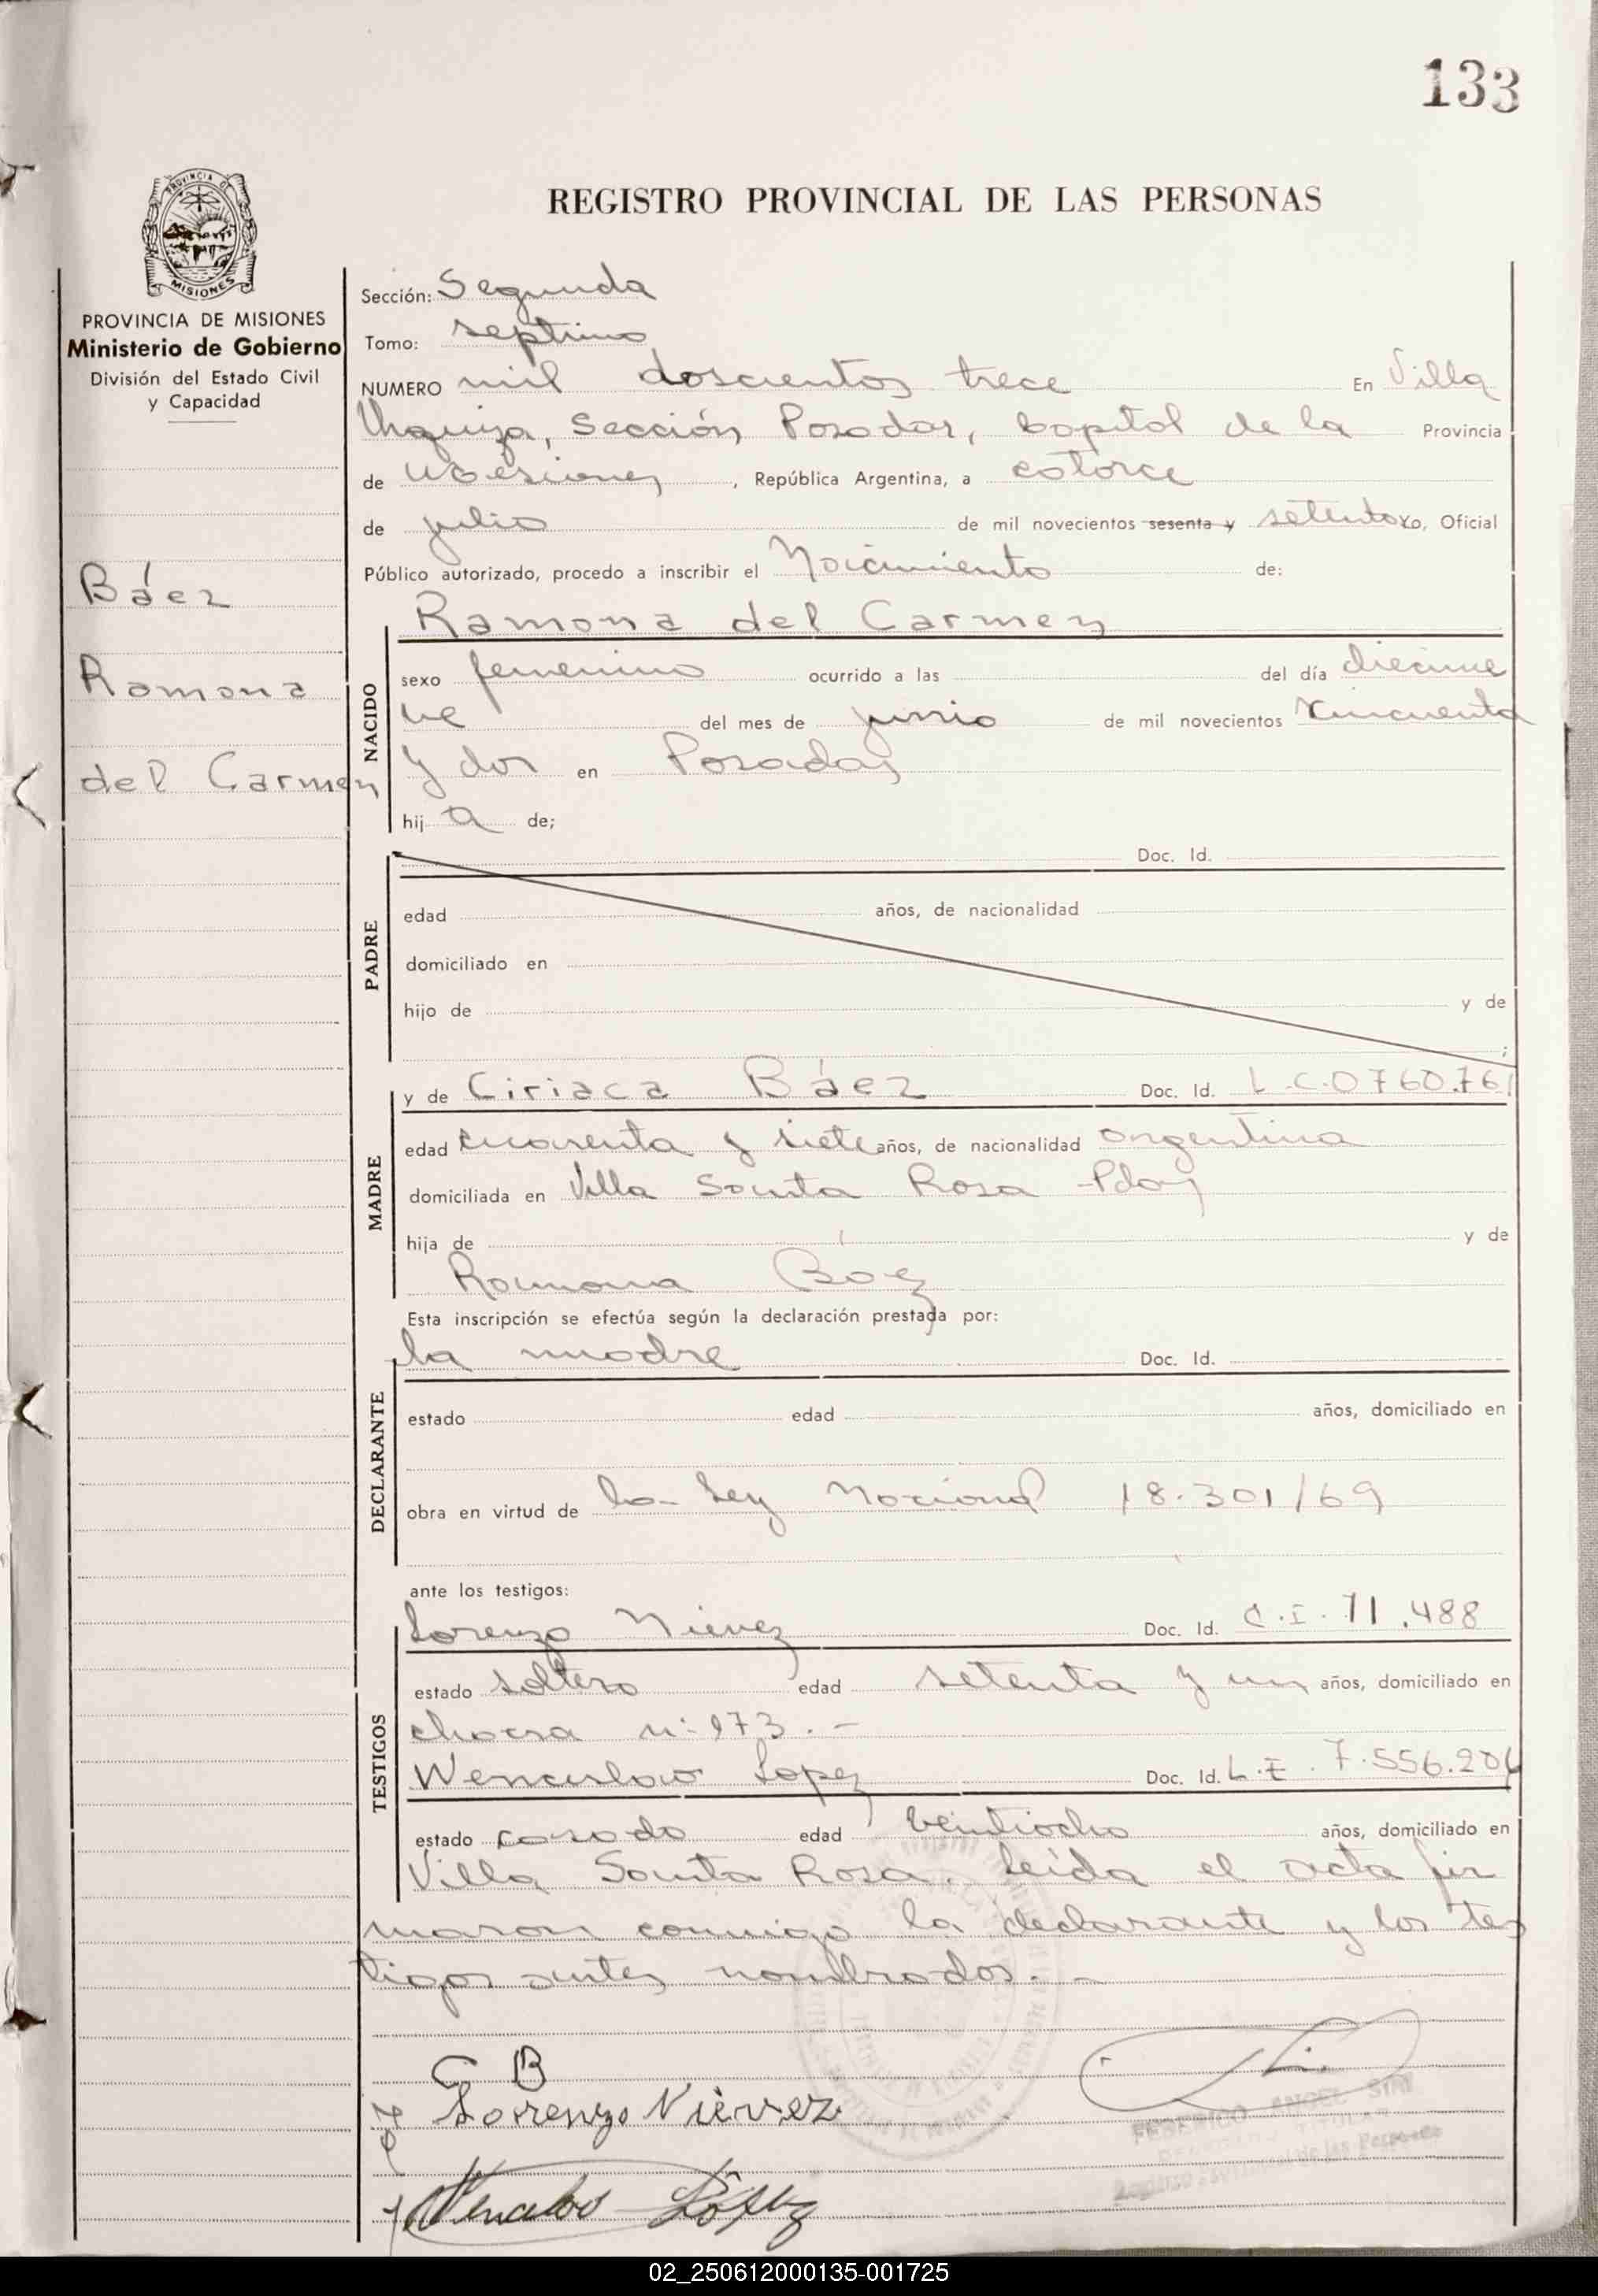 133
PROVINCIA DE
MISIONES
REGISTRO PROVINCIAL DE LAS PERSONAS
PROVINCIA DE MISIONES
Ministerio de Gobierno
División del Estado Civil
y Capacidad
Báez
Ramona
del Carmen
Sección: Segunda
Tomo: septimo
NUMERO mil doscientos trece En Villa
Urquiza, Sección Posadas, Capital de la Provincia
de Misiones, República Argentina, a catorce
de julio de mil novecientos sesenta y setenta yo, Oficial
Público autorizado, procedo a inscribir el Nacimiento de:
NACIDO
Ramona del Carmen
sexo femenino ocurrido a las del día diecinue
ve del mes de junio de mil novecientos cincuenta
y dos en Posadas
hij a de;
PADRE
Doc. Id.
edad años, de nacionalidad
domiciliado en
hijo de y de
;
MADRE
y de Ciriaca Báez Doc. Id. L.C.0760.761
edad cuarenta y siete años, de nacionalidad argentina
domiciliada en Villa Santa Rosa -Pdas
hija de y de
Ramona Báez
Esta inscripción se efectúa según la declaración prestada por:
DECLARANTE
la madre Doc. Id.
estado edad años, domiciliado en
obra en virtud de la Ley Nacional 18.301/69
ante los testigos:
TESTIGOS
Lorenzo Nievez Doc. Id. C.I. 71.488
estado soltero edad setenta y un años, domiciliado en
chacra nº 173.-
Wenceslao Lopez Doc. Id. L.E. 7.556.206
estado casado edad veintiocho años, domiciliado en
Villa Santa Rosa. Leída el acta fir
maron conmigo la declarante y los tes
tigos antes nombrados.-
C B
Lorrenzo Nievez
Wenceslao López
FEDERICO ANGEL SINI
Registro Provincial de las Personas
02_250612000135-001725